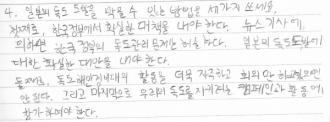 4. 일본의 독도 도발을 막을 수 있는 방법을 세가지 쓰세요.
첫째로, 한국정부에서 확실한 대책을 내야 한다. 뉴스기사에
의하면 한국 정부의 독도관리 문제는 허술 하다. 일본의 독도도발에
대한 확실한 대안을 내야 한다.
둘째로, 독도해안경비대의 활동을 더욱 자극하고 회의만 하고있으면
안 된다. 그리고 마지막으로 우리의 독도를 지켜려는 캠페인과 활동에
참가하여야 한다.